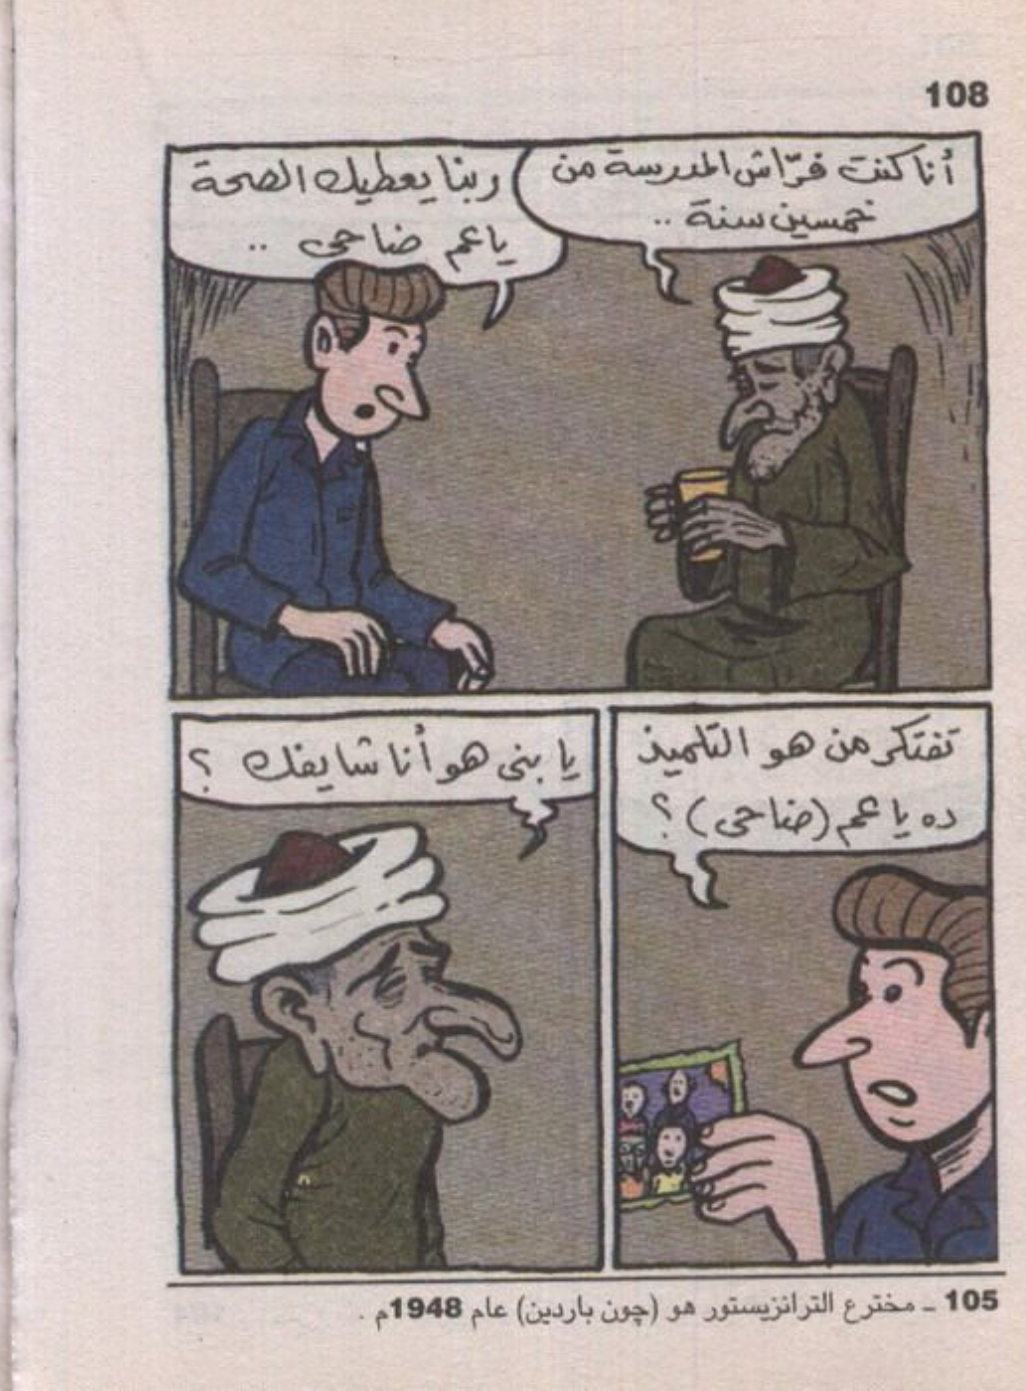 108
أنا كنت فرّاش المدرسة من
خمسين سنة ..
ربنا يعطيك الصحة
يا عم ضاحى ..
تفتكر من هو التلميذ
ده يا عم (ضاحى) ؟
يا بنى هو أنا شايفك ؟
105 ـ مخترع الترانزيستور هو (چون باردين) عام 1948م .